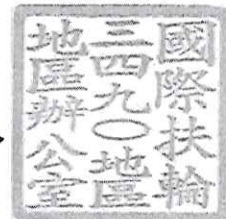 國際扶輪
三四九〇地區
地區辦公室